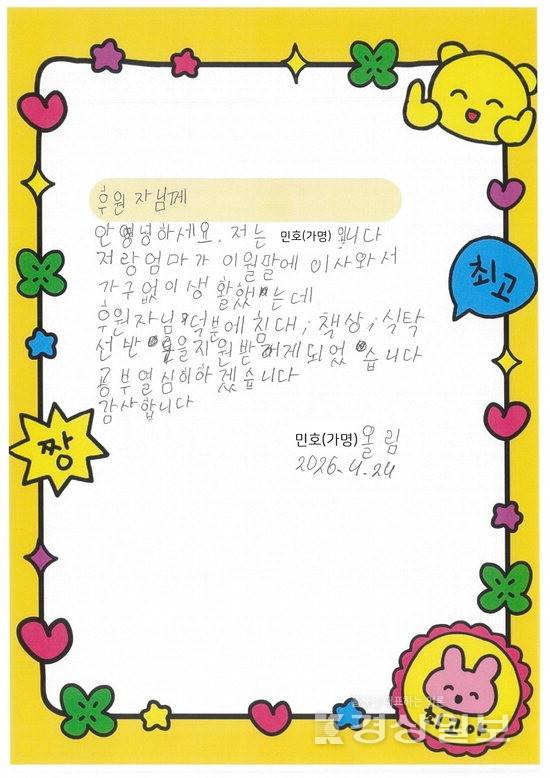 후원자님께
안녕하세요. 저는 민호(가명) 입니다
저랑엄마가 이월말에 이사와서
가구없이생활했는데
후원자님 덕분에 침대, 책상, 식탁
선반 을지원받게되었습니다
공부열심히하겠습니다
감사합니다
민호(가명)올림
2026.4.24
최고
짱
최고야
경상일보